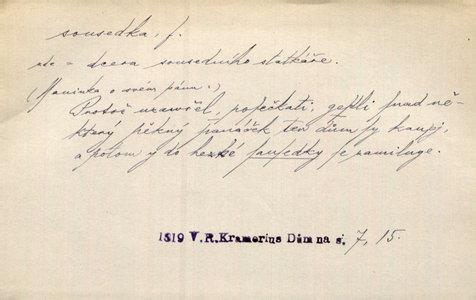 sousedka, f.
zde = dcera sousedního statkáře.
(Maninka o svém pánu:)
Protoč uzawřel, popečkati, gestli snad ně-
který pěkný panáček ten dům sy kaupj,
a potom y do hezké sausedky se zamiluge.
1819 V.R.Kramerius Dům na s. 7, 15.